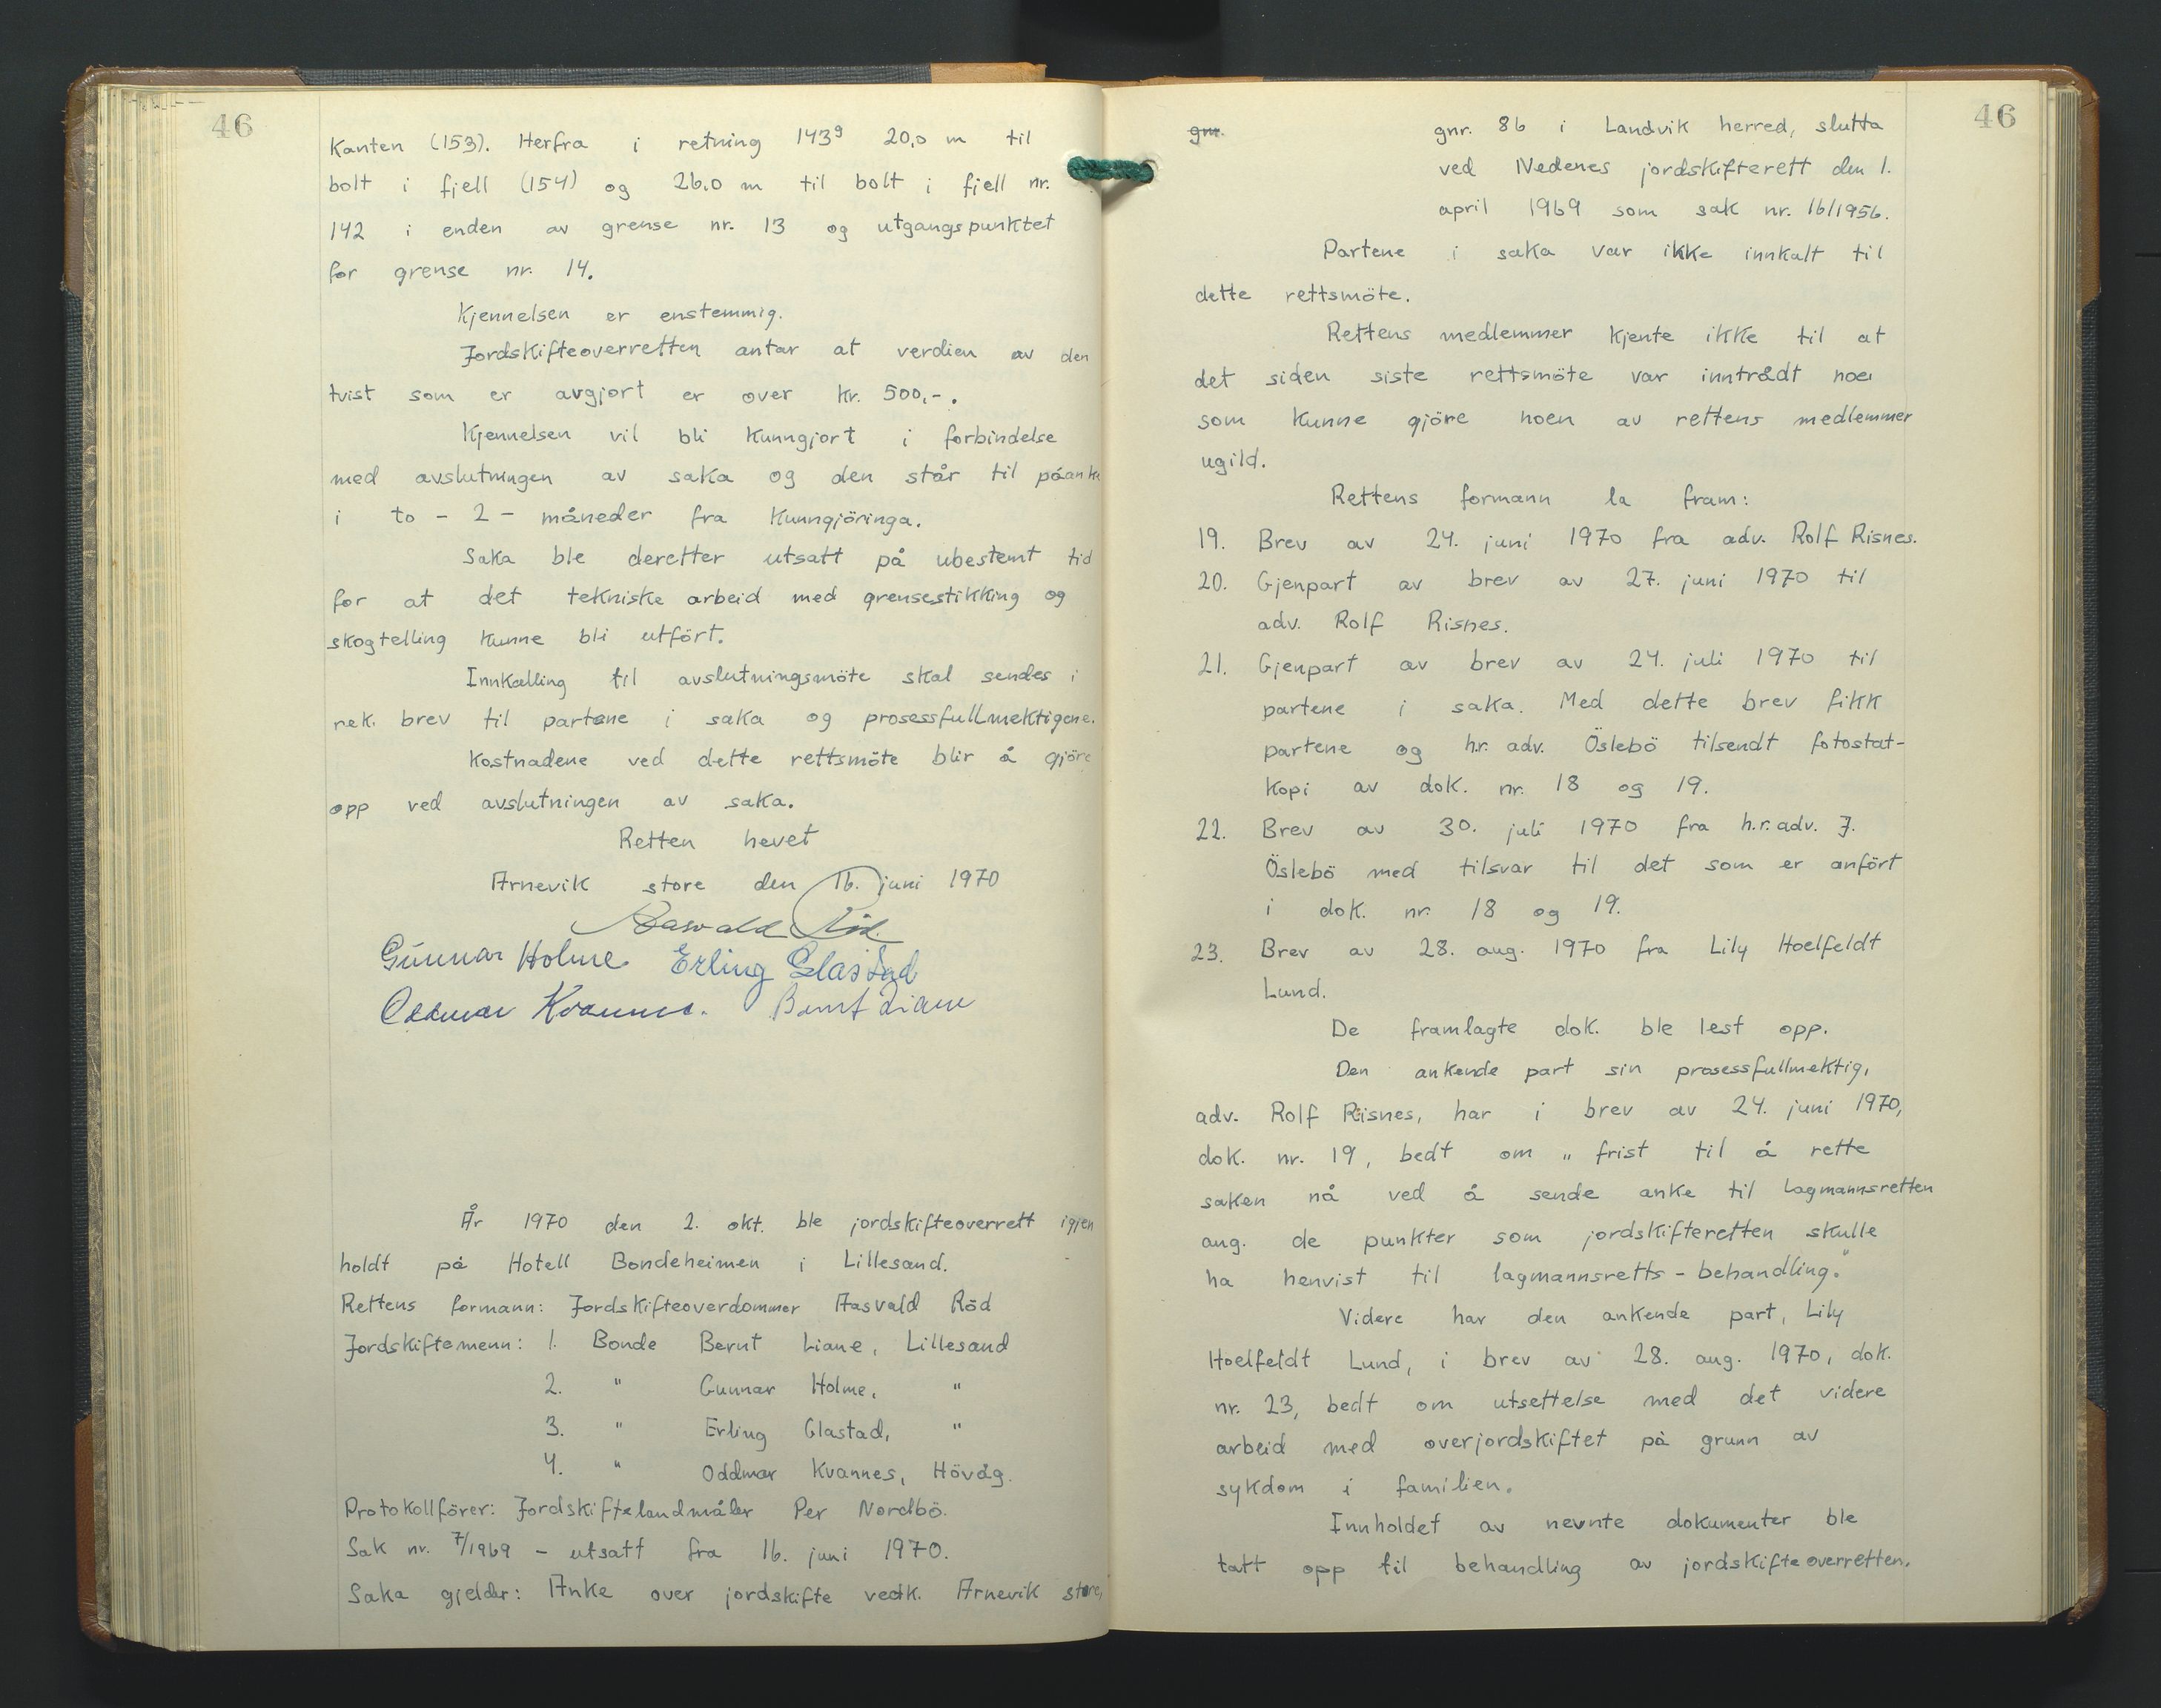 46
Kanten (153). Herfra i retning 143g 20,0 m til
bolt i fjell (154) og 26,0 m til bolt i fjell nr.
142 i enden av grense nr. 13 og utgangspunktet
for grense nr. 14.
Kjennelsen er enstemmig.
Jordskifteoverretten antar at verdien av den
tvist som er avgjort er over kr. 500,-.
Kjennelsen vil bli kunngjort i forbindelse
med avslutningen av saka og den står til påanke
i to - 2 - måneder fra kunngjöringa.
Saka ble deretter utsatt på ubestemt tid
for at det tekniske arbeid med grensestikking og
skogtelling kunne bli utfört.
Innkalling til avslutningsmöte skal sendes i
rek. brev til partene i saka og prosessfullmektigene.
Kostnadene ved dette rettsmöte blir å gjöre
opp ved avslutningen av saka.
Retten hevet
Arnevik store den 16. juni 1970
Aasvald Röd.
Gunnar Holme Erling Glastad
Oddmar Kvannes. Bernt Liane
År 1970 den 2. okt. ble jordskifteoverrett igjen
holdt på Hotell Bondeheimen i Lillesand.
Rettens formann: Jordskifteoverdommer Aasvald Röd
Jordskiftemenn: 1. Bonde Bernt Liane, Lillesand
2. " Gunnar Holme, "
3. " Erling Glastad, "
4. " Oddmar Kvannes, Hövåg.
Protokollförer: Jordskiftelandmåler Per Nordbö.
Sak nr. 7/1969 - utsatt fra 16. juni 1970.
Saka gjelder: Anke over jordskifte vedk. Arnevik store,
46
gnr.
gnr. 86 i Landvik herred, slutta
ved Nedenes jordskifterett den 1.
april 1969 som sak nr. 16/1956.
Partene i saka var ikke innkalt til
dette rettsmöte.
Rettens medlemmer kjente ikke til at
det siden siste rettsmöte var inntrådt noe
som kunne gjöre noen av rettens medlemmer
ugild.
Rettens formann la fram:
19. Brev av 24. juni 1970 fra adv. Rolf Risnes.
20. Gjenpart av brev av 27. juni 1970 til
adv. Rolf Risnes.
21. Gjenpart av brev av 24. juli 1970 til
partene i saka. Med dette brev fikk
partene og h.r. adv. Öslebö tilsendt fotostat-
kopi av dok. nr. 18 og 19.
22. Brev av 30. juli 1970 fra h.r. adv. J.
Öslebö med tilsvar til det som er anfört
i dok. nr. 18 og 19.
23. Brev av 28. aug. 1970 fra Lily Hoelfeldt
Lund.
De framlagte dok. ble lest opp.
Den ankende part sin prosessfullmektig,
adv. Rolf Risnes, har i brev av 24. juni 1970,
dok. nr. 19, bedt om „frist til å rette
saken nå ved å sende anke til lagmannsretten
ang. de punkter som jordskifteretten skulle
ha henvist til lagmannsretts-behandling."
Videre har den ankende part, Lily
Hoelfeldt Lund, i brev av 28. aug. 1970, dok.
nr. 23, bedt om utsettelse med det videre
arbeid med overjordskiftet på grunn av
sykdom i familien.
Innholdet av nevnte dokumenter ble
tatt opp til behandling av jordskifteoverretten.